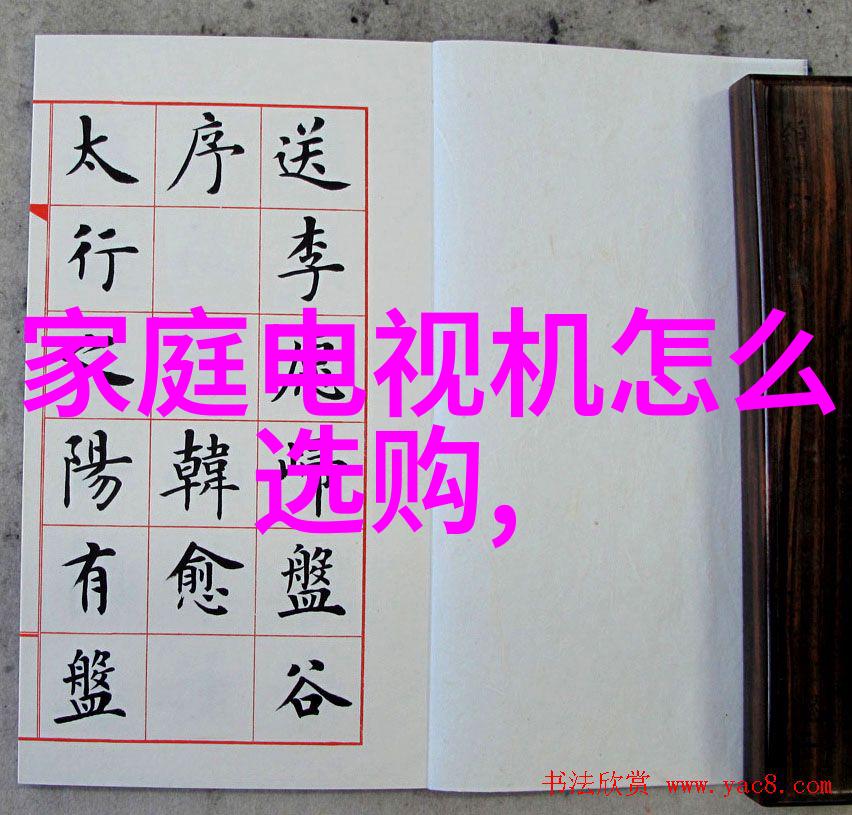 送李盤谷
序韓愈
太行陽有盤
家庭电视机怎么
选购,
书法欣赏 www.yac8.com